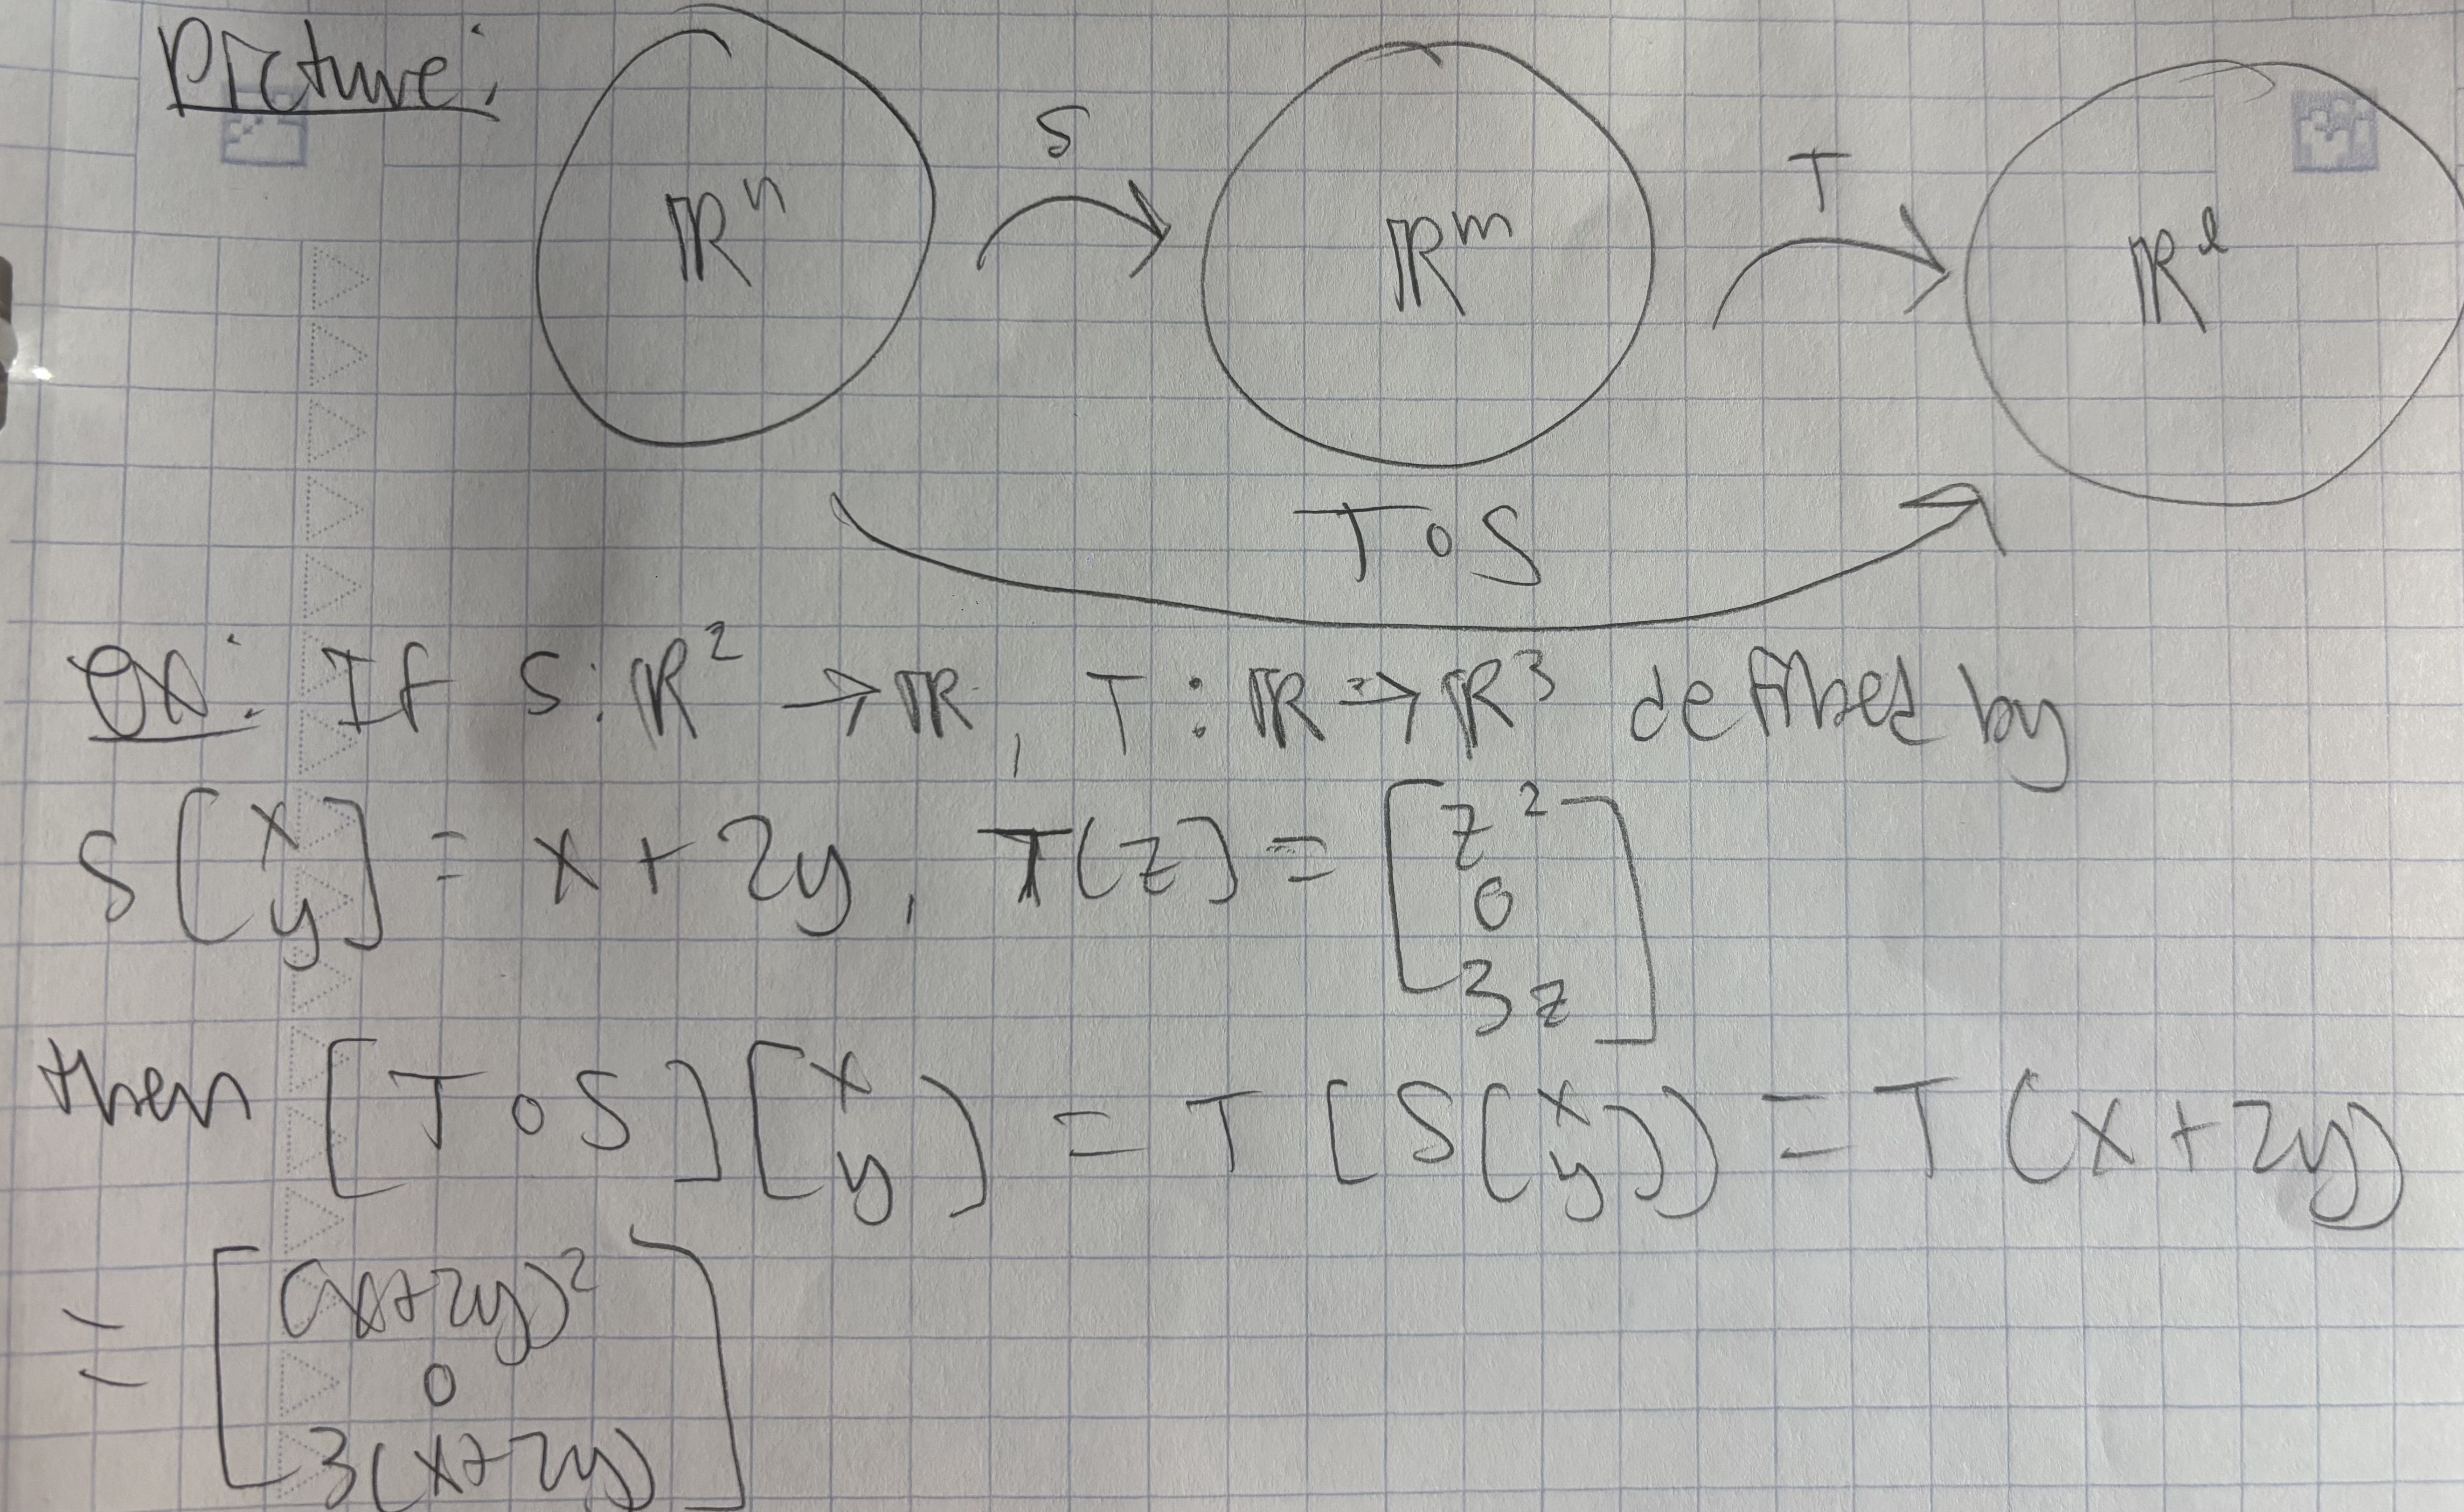 Picture:
S
T
ℝⁿ
ℝᵐ
ℝˡ
T∘S
ex: If S: ℝ² → ℝ, T: ℝ → ℝ³ defined by
S[x y] = x + 2y, T(z) = [z² 0 3z]
then [T∘S][x y) = T[S(x y)) = T(x+2y)
= [(x+2y)² 0 3(x+2y)]